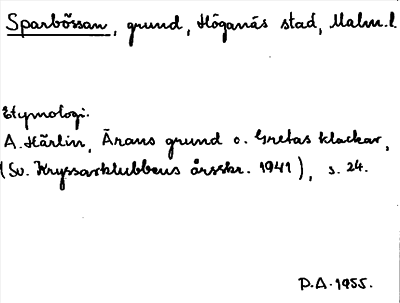 Sparbössan, grund, Höganäs stad, Malm.l.
Etymologi.
A. Härlin, Ärans grund o. Gretas klackar,
(Sv. Kryssarklubbens årsskr. 1941), s. 24.
P.A. 1955.